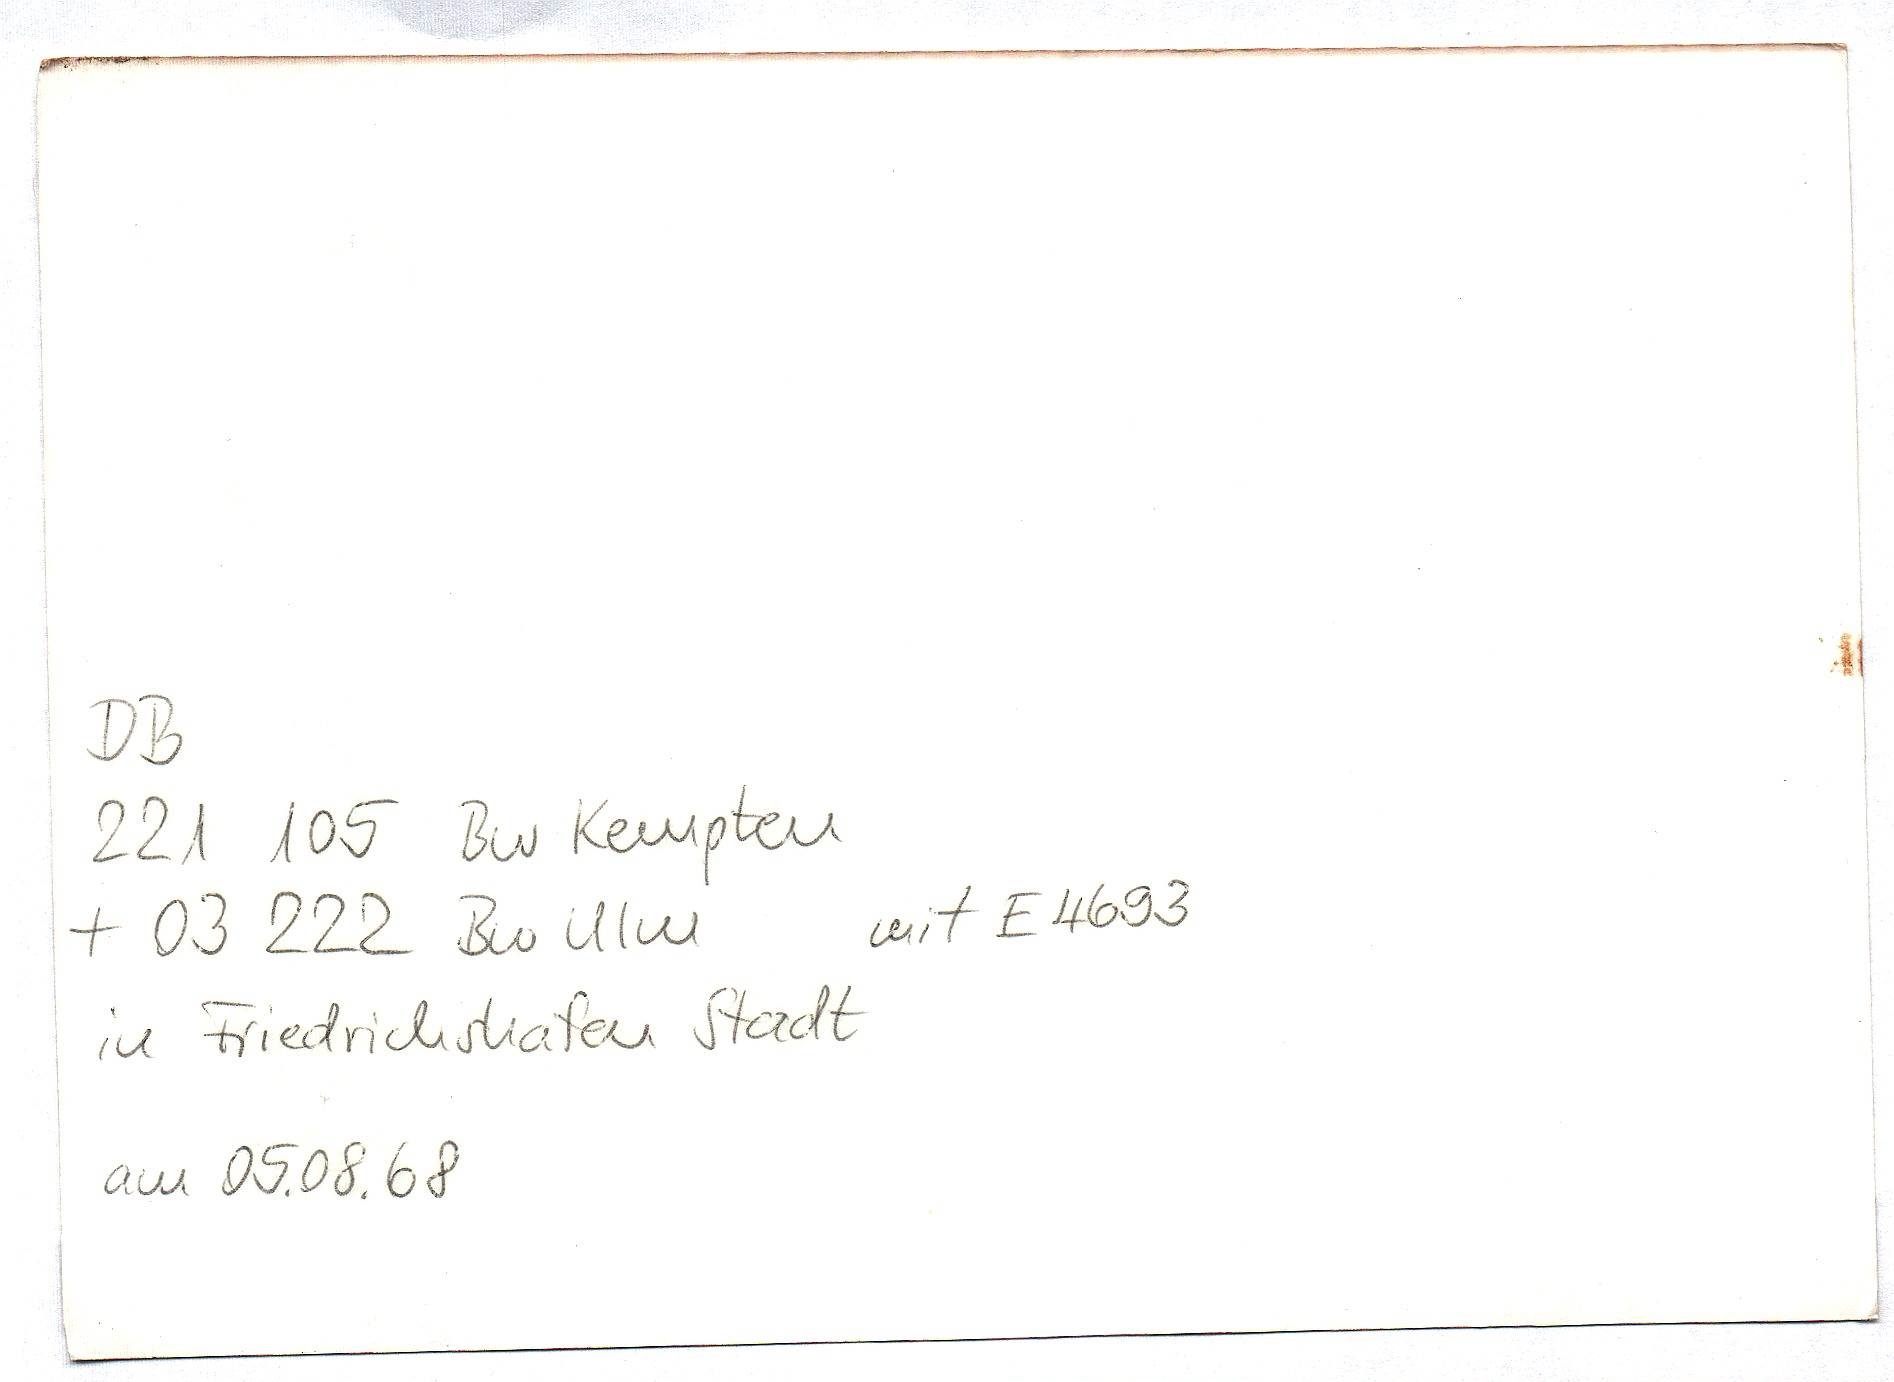 DB
221 105 Bw Kempten
+ 03 222 Bw Ulm mit E 4693
in Friedrichshafen Stadt
am 05.08.68